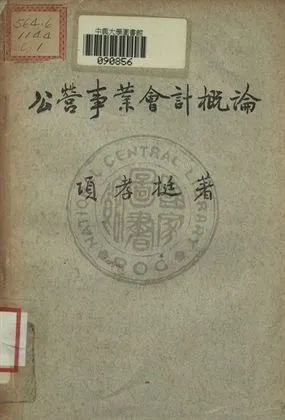 564.6
1144
c.1
中興大學圖書館
090856
公營事業會計概論
項孝挺著
NATIONAL CENTRAL LIBRARY
國家圖書館